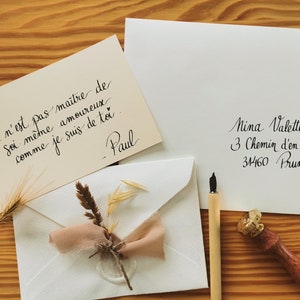 n'est pas maître de
soi même amoureux
comme je suis de toi.
- Paul
Nina Valett
3 Chemin d'en
31460 Prun